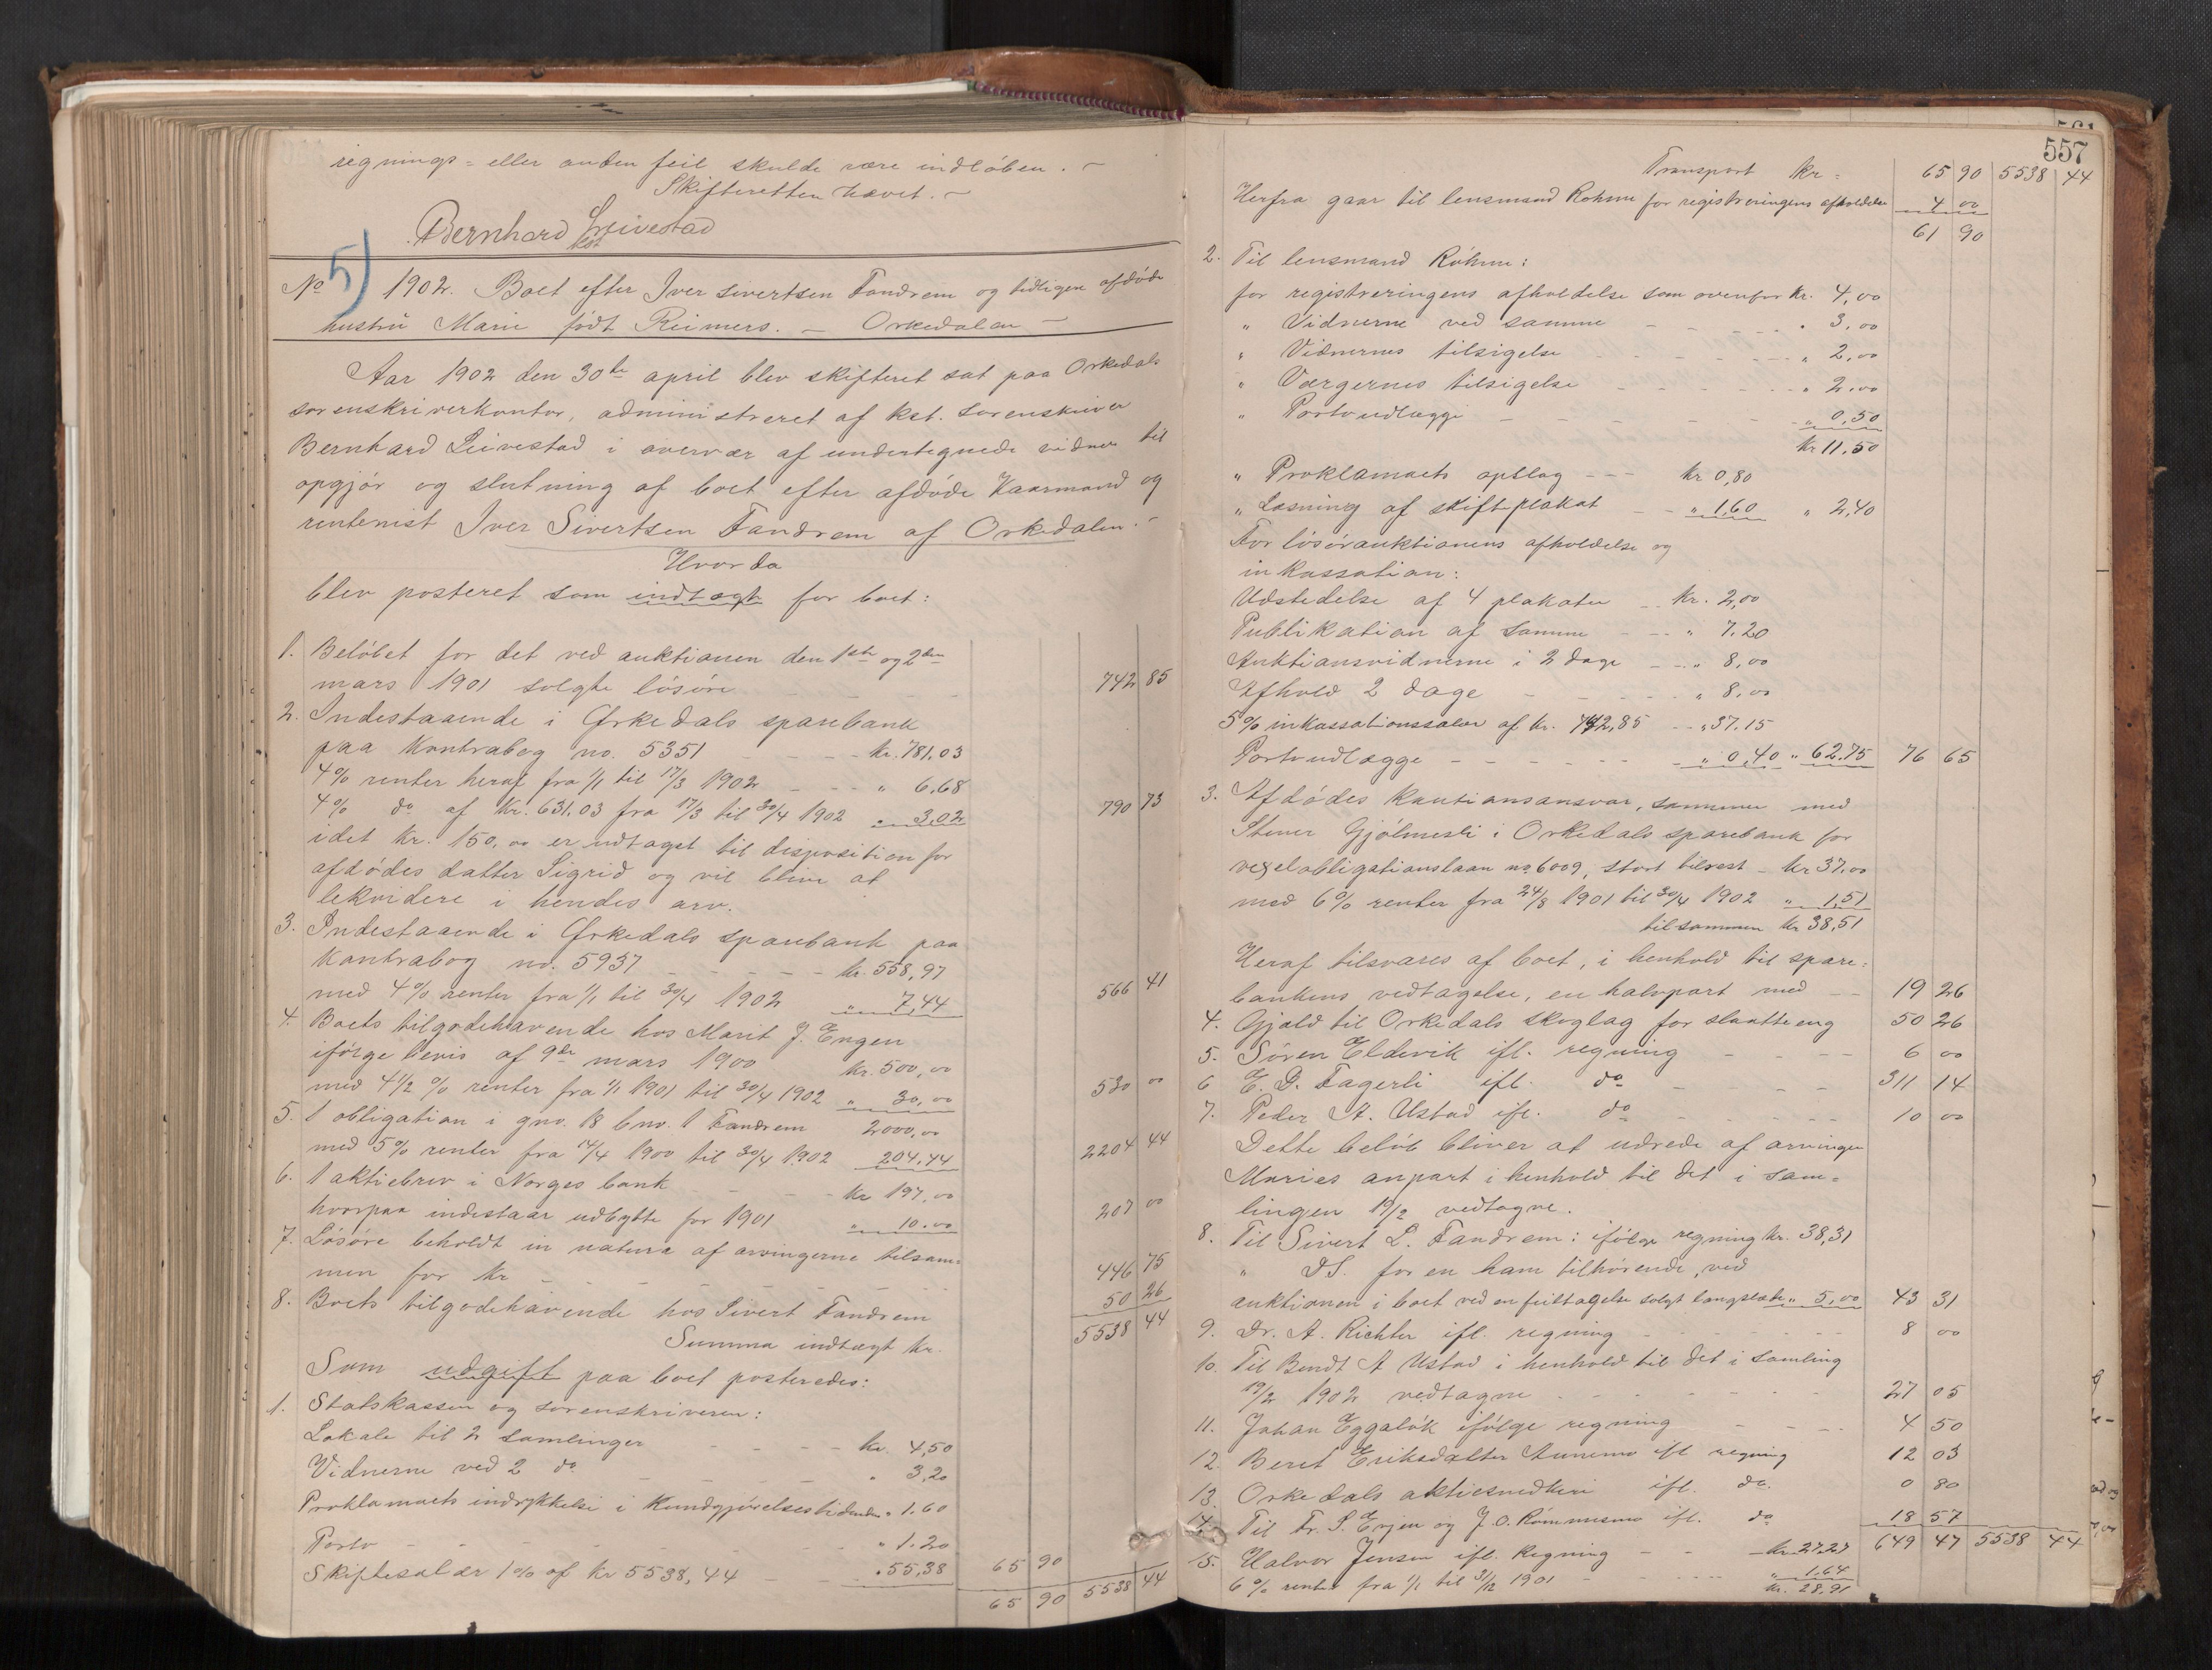 regnings- eller anden feil skulde være indløben. –
Skifteretten hævet. –
Bernhard Leivestad
kst.
No 5) 1902. Boet efter Iver Sivertsen Fandrem og tidligere afdøde
hustru Marie født Reimers. – Orkedalen –
Aar 1902 den 30te april blev skifteret sat paa Orkedals
sorenskriverkontor, administreret af kst. sorenskriver
Bernhard Leivestad i overvær af undertegnede vidner til
opgjør og slutning af boet efter afdøde Kaarmand og
rentenist Iver Sivertsen Fandrem af Orkedalen. –
Hvorda
blev posteret som indtægt for boet:
1. Beløbet for det ved auktionen den 1ste og 2den
mars 1901 solgte løsøre - - - 742 85
2. Indestaaende i Ørkedals sparebank
paa Kontrabog no. 5351 - - - kr. 781,03
4% renter heraf fra 1/1 til 17/3 1902 - - " 6,68
4% do af Kr. 631,03 fra 17/3 til 30/4 1902 " 3,02 790 73
idet kr. 150,00 er udtaget til disposition for
afdødes datter Sigrid og vil blive at
lekvidere i hendes arv.
3. Indestaaende i Ørkedals sparebank paa
Kontrabog no. 5937 - - - - - kr. 558,97
med 4% renter fra 1/1 til 30/4 1902 " 7,44 566 41
4. Boets tilgodehavende hos Marit J. Engen
ifølge bevis af 9de mars 1900 kr. 500,00
med 4 1/2 % renter fra 1/1 1901 til 30/4 1902 " 30,00 530 00
5. 1 obligation i gno. 18 bno. 1 Fandrem 2000,00
med 5% renter fra 14/4 1900 til 30/4 1902 204,44 2204 44
6. 1 aktiebrev i Norges bank - - - kr 197,00
hvorpaa indestaar udbytte for 1901 " 10.00 207 00
7. Løsøre beholdt in natura af arvingerne tilsam=
men for kr - - - - 446 75
8. Boets tilgodehavende hos Sivert Fandrem 50 26
Summa indtægt kr. 5538 44
Som udgift paa boet posteredes:
1. Statskassen og sorenskriveren:
Lokale til 2 samlinger - - - - kr. 4,50
Vidnerne ved 2 do - - - - " 3,20
Proklamaets indrykkelse i Kundgjørelsestidende " 1.60
Porto - - - - " 1.20
Skiftesalær 1% af kr 5538,44 - - " 55,38 65 90
65 90 5538 44
557
Transport kr = 65 90 5538 44
Herfra gaar til lensmand Røhme for registreringens afholdelse 4 00
61 90
2. Til lensmand Røhme:
for registreringens afholdelse som ovenfor kr. 4,00
" Vidnerne ved samme - - - - " 3,00
" Vidnernes tilsigelse - - - - " 2,00
" Værgernes tilsigelse - - - - " 2.00
" Portoudlægge - - - - " 0,50
kr 11.50
" Proklamaets opslag - - - kr 0,80
" Læsning af skifteplakat - - " 1,60 " 2,40
For løsørauktionens afholdelse og
inkassation:
Udstedelse af 4 plakater - - kr. 2,00
Publikation af samme - - - " 7.20
Auktionsvidnerne i 2 dage - - " 8,00
Afhold 2 dage - - - - " 8,00
5% inkassationssalær af kr. 742,85 - - " 37.15
Portoudlægge - - - - " 0,40 " 62.75 76 65
3. Afdødes kautionsansvar, sammen med
Stener Gjølmesli i Orkedals sparebank for
vexelobligationslaan no 6009, stort tilrest - kr 37.00
med 6% renter fra 24/8 1901 til 30/4 1902 " 1,51
tilsammen kr 38,51
Heraf tilsvares af boet, i henhold til spare=
bankens vedtagelse, en halvpart med - - 19 26
4. Gjæld til Orkedals skoglag for slaatteeng 50 26
5. Søren Eldevik ifl. regning - - - - 6 00
6 E. D. Fagerli ifl. do - - - 311 14
7. Peder A. Ustad ifl. do - - - - 10 00
Dette beløb bliver at udrede af arvingen
Maries anpart i henhold til det i sam=
lingen 19/2 vedtagne.
8. Til Sivert L. Fandrem: ifølge regning kr. 38,31
" DS. for en ham tilhørende, ved
auktionen i boet ved en feiltagelse solgt langslæde " 5,00 43 31
9. Dr. A. Richter ifl. regning - - - - 8 00
10. Til Bendt A Ustad i henhold til det i samling
19/2 1902 vedtagne - - - - 27 05
11. Johan Eggaløk ifølge regning - - - 4 50
12. Beret Eriksdatter ifl regning 12 03
13. Orkedals aktiesmedteri ifl. do. 0 80
14. Til Fr. S. Evjen og J. O. Rømmesmo ifl. do 18 57
649 47 5538 44
15. Halvor Jensen ifl. Regning - - - kr. 27.27
6% renter fra 1/1 til 31/12 1901 - - - - " 1,64
kr. 28,91